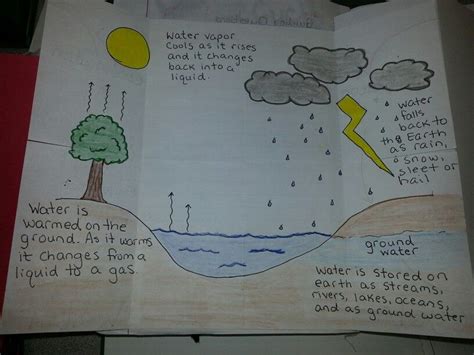 Water vapor
cools as it rises
and it changes
back into a
liquid.
water
falls
back to
the Earth
as rain,
snow,
sleet or
hail
Water is
warmed on the
ground. As it warms
it changes from a
liquid to a gas.
ground
water
Water is stored on
earth as streams,
rivers, lakes, oceans,
and as ground water